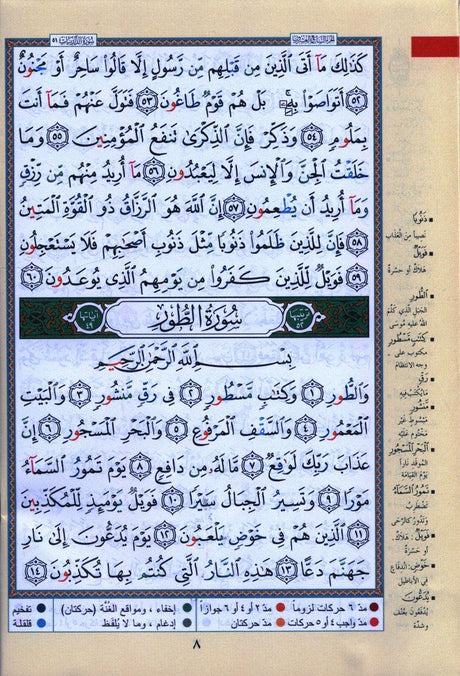 سورة الذاريات ٥١
كَذَٰلِكَ مَآ أَتَى ٱلَّذِينَ مِن قَبْلِهِم مِّن رَّسُولٍ إِلَّا قَالُوا۟ سَاحِرٌ أَوْ مَجْنُونٌ
٥٢ أَتَوَاصَوْا۟ بِهِۦ ۚ بَلْ هُمْ قَوْمٌ طَاغُونَ ٥٣ فَتَوَلَّ عَنْهُمْ فَمَآ أَنتَ
بِمَلُومٍ ٥٤ وَذَكِّرْ فَإِنَّ ٱلذِّكْرَىٰ تَنفَعُ ٱلْمُؤْمِنِينَ ٥٥ وَمَا
خَلَقْتُ ٱلْجِنَّ وَٱلْإِنسَ إِلَّا لِيَعْبُدُونِ ٥٦ مَآ أُرِيدُ مِنْهُم مِّن رِّزْقٍ
وَمَآ أُرِيدُ أَن يُطْعِمُونِ ٥٧ إِنَّ ٱللَّهَ هُوَ ٱلرَّزَّاقُ ذُو ٱلْقُوَّةِ ٱلْمَتِينُ
٥٨ فَإِنَّ لِلَّذِينَ ظَلَمُوا۟ ذَنُوبًا مِّثْلَ ذَنُوبِ أَصْحَٰبِهِمْ فَلَا يَسْتَعْجِلُونِ
٥٩ فَوَيْلٌ لِّلَّذِينَ كَفَرُوا۟ مِن يَوْمِهِمُ ٱلَّذِى يُوعَدُونَ ٦٠
ترتيبها ٥٢ سُورَةُ الطُّورِ آياتها ٤٩
بِسْمِ ٱللَّهِ ٱلرَّحْمَٰنِ ٱلرَّحِيمِ
وَٱلطُّورِ ١ وَكِتَٰبٍ مَّسْطُورٍ ٢ فِى رَقٍّ مَّنشُورٍ ٣ وَٱلْبَيْتِ
ٱلْمَعْمُورِ ٤ وَٱلسَّقْفِ ٱلْمَرْفُوعِ ٥ وَٱلْبَحْرِ ٱلْمَسْجُورِ ٦ إِنَّ
عَذَابَ رَبِّكَ لَوَٰقِعٌ ٧ مَّا لَهُۥ مِن دَافِعٍ ٨ يَوْمَ تَمُورُ ٱلسَّمَآءُ
مَوْرًا ٩ وَتَسِيرُ ٱلْجِبَالُ سَيْرًا ١٠ فَوَيْلٌ يَوْمَئِذٍ لِّلْمُكَذِّبِينَ
١١ ٱلَّذِينَ هُمْ فِى خَوْضٍ يَلْعَبُونَ ١٢ يَوْمَ يُدَعُّونَ إِلَىٰ نَارِ
جَهَنَّمَ دَعًّا ١٣ هَٰذِهِ ٱلنَّارُ ٱلَّتِى كُنتُم بِهَا تُكَذِّبُونَ ١٤
ذَنُوبًا
نصيباً من العذاب
فَوَيْلٌ
هلاكٌ أو حسرةٌ
الطُّورِ
الجبل الذي كلّم
الله عليه موسى
كِتَٰبٍ مَّسْطُورٍ
مكتوب على
وجه الانتظام
رَقٍّ
ما يُكتب فيه
مَّنشُورٍ
مبسوط غير
مختوم عليه
الْبَحْرِ الْمَسْجُورِ
الموقد ناراً
يوم القيامة
تَمُورُ السَّمَآءُ
تضطرب
وتدور كالرّحى
فَوَيْلٌ: هلاك
أو حسرة
خَوْضٍ: اندفاع
في الأباطيل
يُدَعُّونَ
يُدفعون بعنف
وشدّة
مدّ ٦ حركات لزوماً مدّ ٢ أو ٤ أو ٦ جوازاً إخفاء ، ومواقع الغُنَّة (حركتان) تفخيم
مدّ واجب ٤ أو ٥ حركات مدّ حركتان إدغام ، وما لا يُلفَظ قلقلة
٨